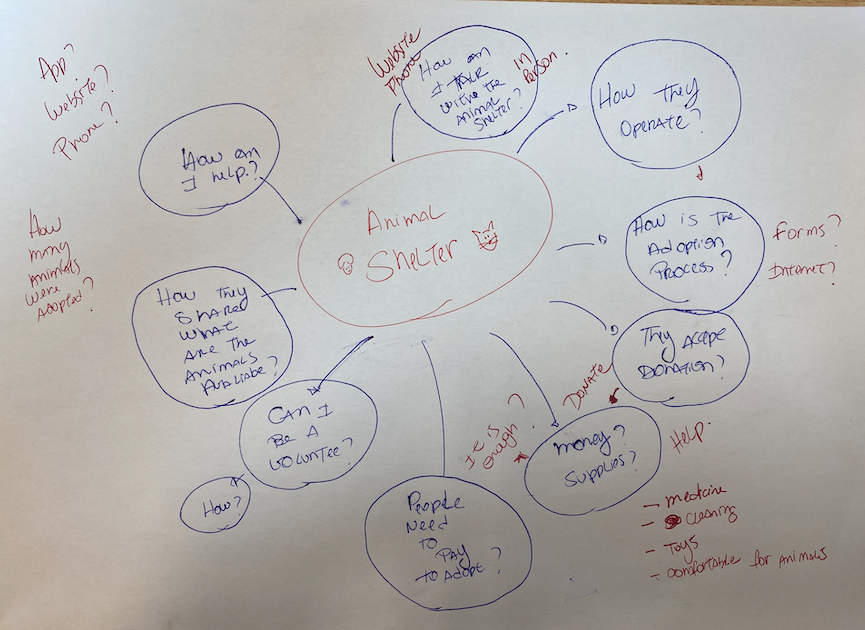 App?
Website?
Phone?
How
many
Animals
were
Adopted?
How can
I help.?
Website
Phone
How can
I talk
with the
Animal
Shelter?
In
Person.
How they
Operate?
Animal
Shelter
How is the
Adoption
Process?
Forms?
Internet?
They Accept
Donation?
Donate
Money?
Supplies?
Help.
- medicine
- cleaning
- Toys
- comfortable for animals
It is
enough?
People
Need
To
Pay
To Adopt?
Can I
Be A
Voluntee?
How?
How they
Share
what
Are the
Animals
Avaliabe?